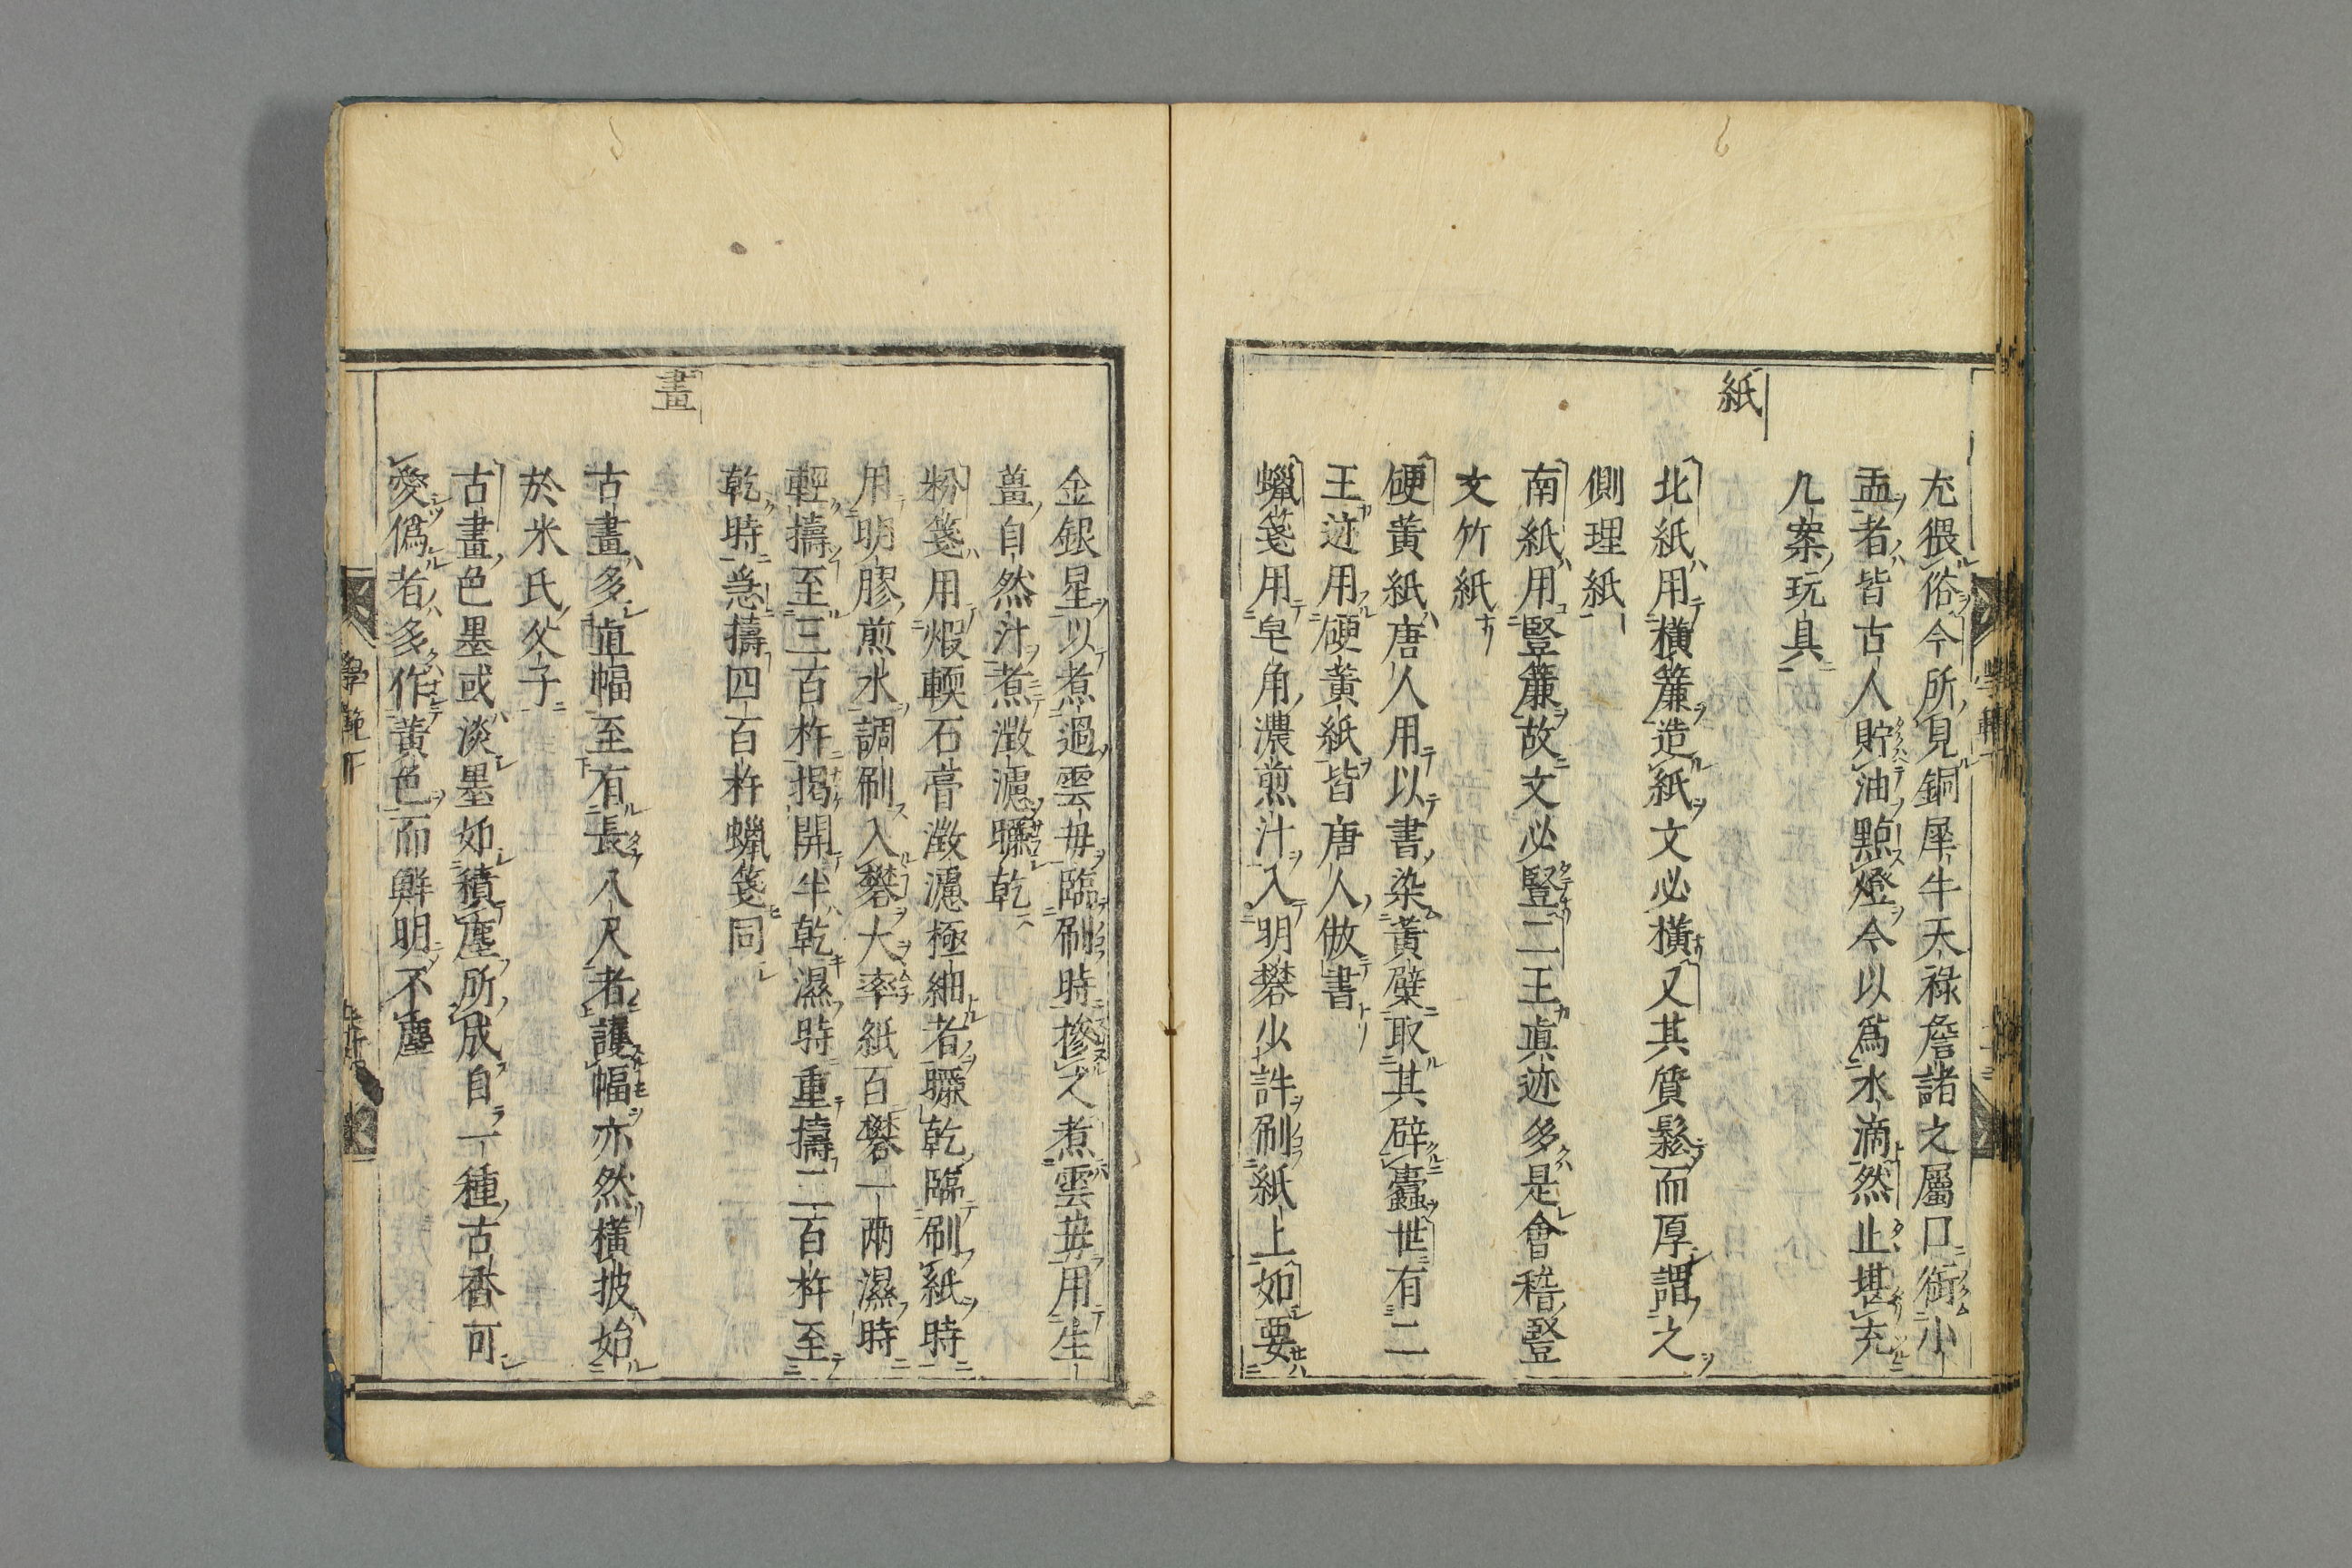 尢猥俗今所見銅犀牛天祿詹諸之屬口銜小
盂者皆古人貯油點燈今以爲水滴然止堪充
几案玩具
紙
北紙用橫簾造紙文必橫又其質鬆而厚謂之
側理紙
南紙用豎簾故文必豎二王眞迹多是會稽豎
文竹紙
硬黃紙唐人用以書染黃蘗取其辟蠹世有二
王迹用硬黃紙皆唐人倣書
蠟箋用皂角濃煎汁入明礬少許刷紙上如要
金銀星以煮過雲母臨刷時摻入煮雲母用生
薑自然汁煮澂濾曝乾
粉箋用煆輭石膏澂濾極細者曝乾臨刷紙時
用明膠煎水調刷入礬大率紙百礬一兩濕時
輕擣至三百杵揭開半乾濕時重擣二百杵至
乾時急擣四百杵蠟箋同
畫
古畫多直幅至有長八尺者護幅亦然橫披始
於米氏父子
古畫色墨或淡墨如積塵所成自一種古香可
愛僞者多作黃色而鮮明不塵
學範下